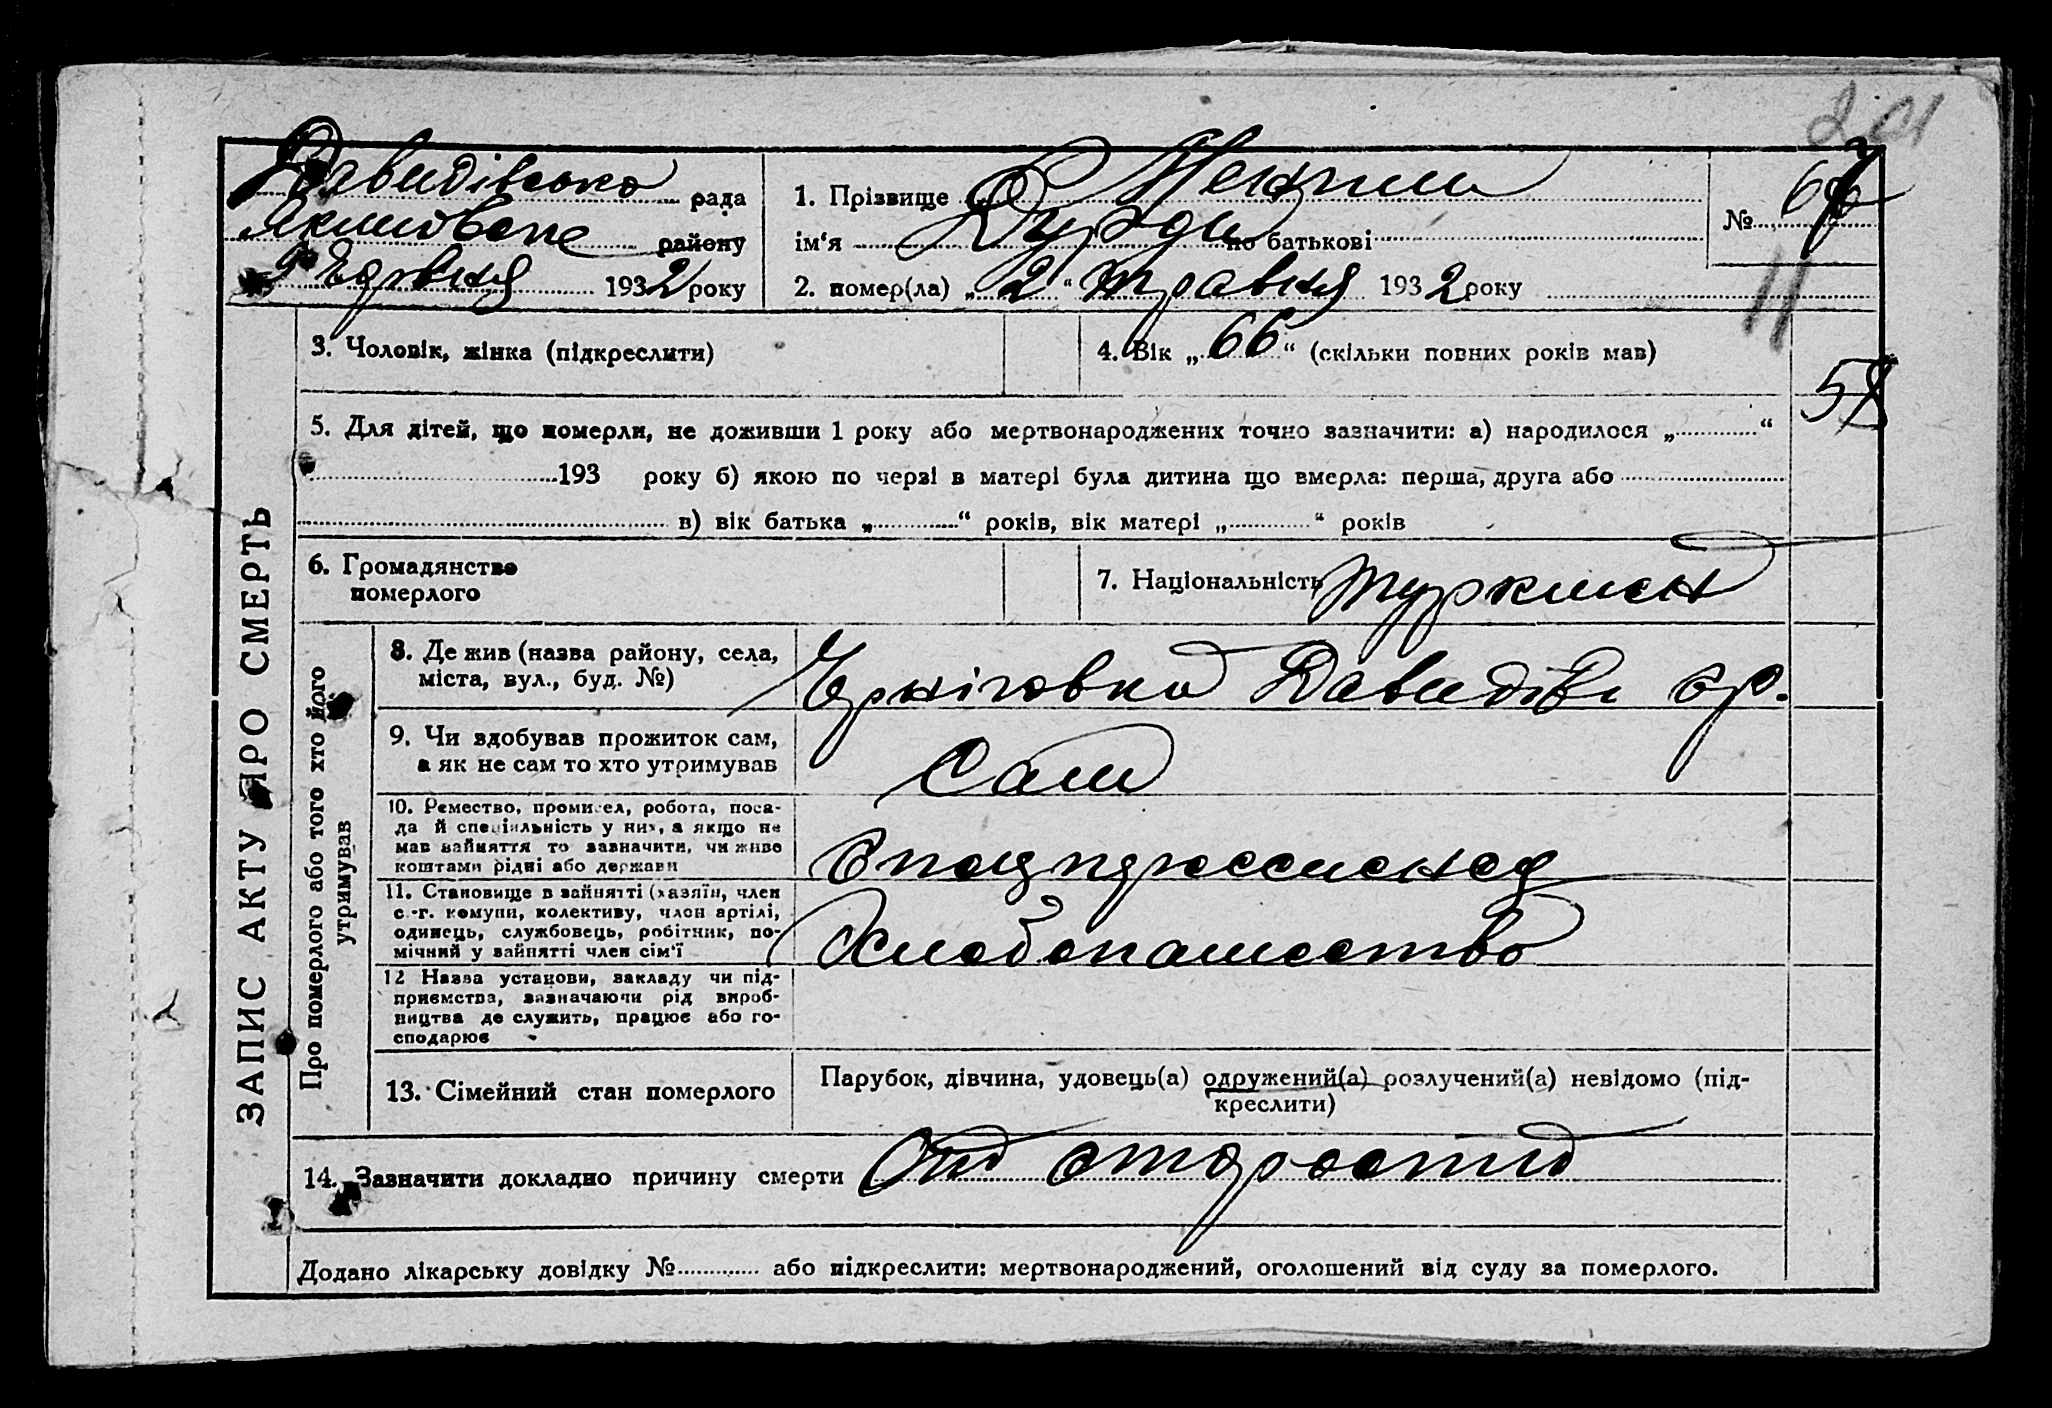 201
Давидівсько рада
Якимовске району
2 Червня 1932 року
1. Прізвище Менгли
ім‘я Дурди по батькові
№ 67
2. помер(ла) „ 2 “ травня 1932 року
11
3. Чоловік, жінка (підкреслити)
4. Вік „ 66 “ (скільки повних років мав)
58
5. Для дітей, що померли, не доживши 1 року або мертвонароджених точно зазначити: а) народилося „ “
193 року б) якою по черзі в матері була дитина що вмерла: перша, друга або
в) вік батька „ “ років, вік матері „ “ років
6. Громадянство
померлого
7. Національність туркмен
ЗАПИС АКТУ ПРО СМЕРТЬ
Про померлого або того хто його
утримував
8. Де жив (назва району, села,
міста, вул., буд. №)
Черніговка Давидів с р.
9. Чи здобував прожиток сам,
а як не сам то хто утримував
Сам
10. Ремество, промисел, робота, поса-
да й спеціяльність у них, а якщо не
мав зайняття то зазначити, чи живе
коштами рідні або держави
11. Становище в зайнятті (хазяїн, член
с.-г. комуни, колективу, член артілі,
одинець, службовець, робітник, по-
мічний у зайнятті член сім‘ї
Хлебопашество
12 Назва установи, закладу чи під-
приємства, зазначаючи рід вироб-
ництва де служить, працює або го-
сподарює
13. Сімейний стан померлого
Парубок, дівчина, удовець(а) одружений(а) розлучений(а) невідомо (під-
креслити)
14. Зазначити докладно причину смерти От старости
Додано лікарську довідку № або підкреслити: мертвонароджений, оголошений від суду за померлого.